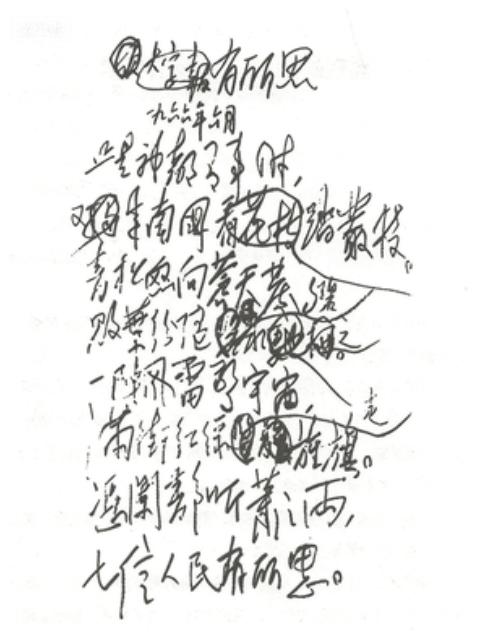 大字报有所思
一九六六年六月
正是神都有事时,
来南国看花枝踏丛枝。
青松怒向苍天发,
败叶纷随
一阵风雷惊宇宙,
满街红绿走旌旗。
凭阑静听萧之雨,
七亿人民有所思。